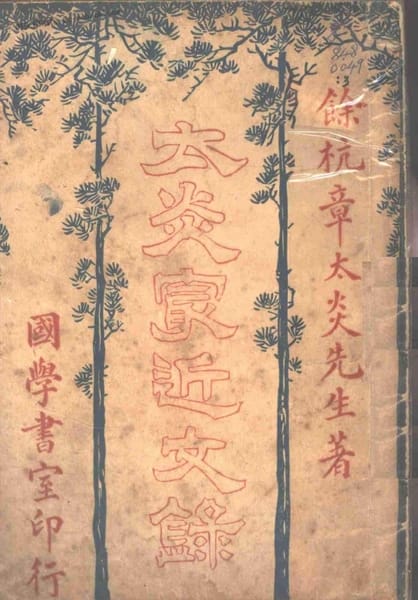 0049
:3
餘杭章太炎先生著
太炎㝡近文錄
國學書室印行